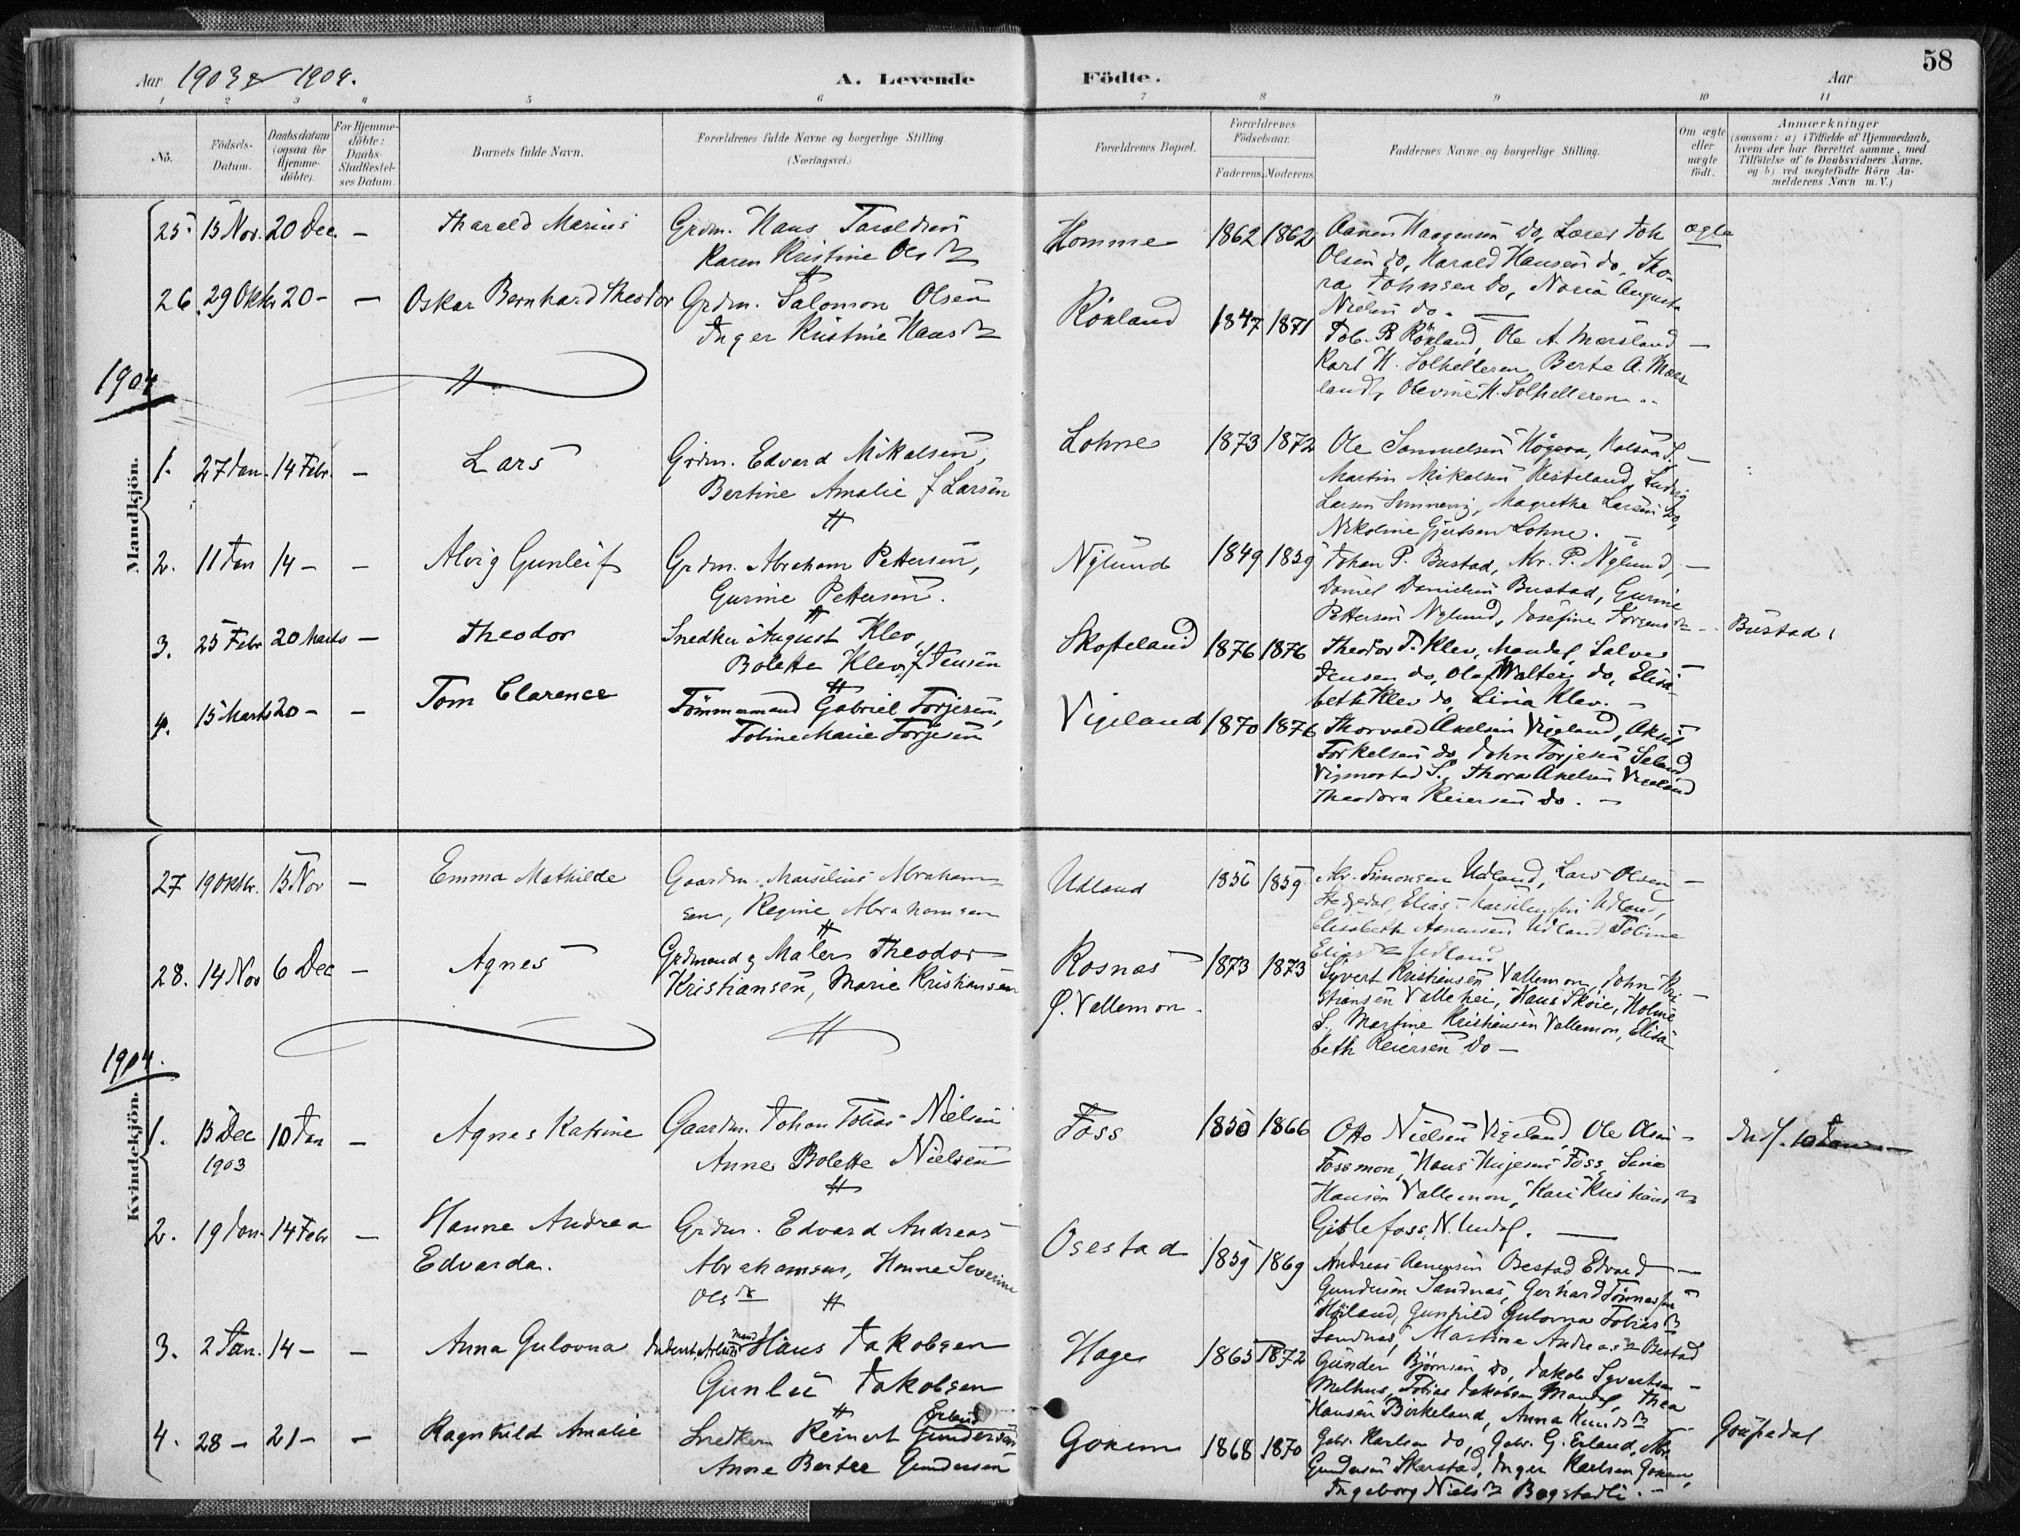 58
Aar 1903 & 1904.
A. Levende Födte.
Aar
1 2 3 4 5 6 7 8 9 10 11
No.
Födsels-Datum.
Daabsdatum (ogsaa for Hjemme-döbte).
For Hjemme-döbte: Daabs-Stadfæstel-ses Datum
Barnets fulde Navn.
Forældrenes fulde Navne og borgerlige Stilling.
(Næringsvei.)
Forældrenes Bopæl.
Forældrenes Födselsaar.
Faderens. Moderens.
Faddernes Navne og borgerlige Stilling.
Om ægte eller uægte födt.
Anmærkninger
(saasom: a) i Tilfælde af Hjemmedaab,
hvem der har forrettet samme, med
Tilföielse af to Daabsvidners Navne,
og b) ved uægtefödte Börn An-
melderens Navn m. V.)
Mandkjön.
25. 15 Nov. 20 Dec. — Tharald Marius
Grdm. Hans Taraldsen
Karen Kristine Olsdtr
Homme 1862 1862
Aanen Haagensen do, Lærer Joh
Olsen do, Harald Hansen do, Tho-
ra Johnsen do,
Nielsen do. —
ægte
26. 29 Oktbr 20 – — Oskar Bernhard Theodor
Grdm. Salomon Olsen
Inger Kristine Hansdtr
Rökland 1847 1871
Tob. R Rökland, Ole A. Mæsland —
Karl K. Solhelleren, Berte A. Mæs
land, Olevine K. Solhelleren
1904
1. 27 Jan. 14 Febr. — Lars
Grdm. Edvard Mikalsen,
Bertine Amalie f Larsen
Lohne 1873 1872
Ole Samuelsen Högera, Halsaa S. —
Martin Mikalsen Hesteland, Ludvig
Larsen, Magrethe Larsen do,
Nikoline Gjertsen Lohne.
2. 11 Jan 14 – – Alvig Gunleif
Grdm. Abraham Pettersen,
Gurine Pettersen.
Nylund 1849 1859
Johan P. Bustad, Abr. P. Nylund, —
Daniel Danielsen Bustad, Gurine
Pettersen Nylund, Josefine Jörgensdtr
Bustad
3. 25 Febr 20 Marts — Theodor
Snedker August Klev,
Bolette Klev, f Jensen
Skofteland 1876 1876
Theodor T. Klev, Mandal, Salve
Jensen do, Olaf Walter do, Elisa-
beth Klev do, Lina Klev. —
4. 15 Marts 20 – – Tom Clarence
Tömmermand Gabriel Torjesen,
Toline Marie Torjesen
Vigeland 1870 1876
Thorvald Axelsen Vigeland, Aksel
Torkelsen do, John Torjesen Seland
Vigmostad S., Thora Axelsen Vigeland
Theodora Reiersen do. —
Kvindekjön.
27 19 Oktbr. 15 Nov — Emma Mathilde
Gaardm. Marsilius Abraham-
sen, Regine Abrahamsen
Udland 1856 1859
Abr. Simonsen Udland, Lars Olsen —
Elias Marseliussen Udland,
Elisabeth Aanensen Udland, Toline
Eliasdtr Udland
28. 14 Nov 6 Dec — Agnes
Grdmand & Maler Theodor
Kristiansen, Marie Kristiansen
Rosnæs
P. Vallemon.
1873 1873
Syvert Kristiansen Vallemon, John Kri
stiansen Vallehei, Hans Skoie, Holme
S. Martine Kristiansen Vallemon, Elisa-
beth Reiersen do —
1904.
1. 13 Dec 1903 10 Jan — Agnes Katrine
Gaardm. Johan Tobias Nielsen
Anne Bolette Nielsen
Foss 1850 1866
Otto Nielsen Vigeland, Ole Olsen —
Fossmon, Hans Foss, Lina
Hansen Vallemon, Kari Kristiansdtr
Gislefoss, N. Undal. —
Indf. 10 Jan
2. 19 Jan. 14 Febr — Hanne Andrea
Edvarda.
Grdm. Edvard Andreas
Abrahamsen, Hanne Severine
Olsdtr
Osestad 1859 1869
Andreas Aanensen Osestad, Edvard —
Gundersen Sandnæs, Gerhard Tönnessen
Höiland, Gunhild Gulovna Tobiasdtr
Sandnæs, Martine Andreasdtr Osestad
3. 2 Jan. 14 – – Anna Gulovna
mand Hans Jakobsen
Gunlu Jakobsen
Hage 1865 1872
Gunder Björnsen do, Jakob Syvertsen —
Melhus, Tobias Jakobsen Mandal, Thea
Hansen Birkeland, Anna Knudsdtr
Goksedal
4. 28 – 21 – – Ragnhild Amalie
Snedker Reinert Gundersen Erland
Anne Bertee Gundersen
Goksem 1868 1870
Gabr. Karlsen do, Gabr. G. Erland, Abr.
Gundersen Skarstad, Inger Karlsen Goksem,
Ingeborg Nielsdtr Bogstadli. —